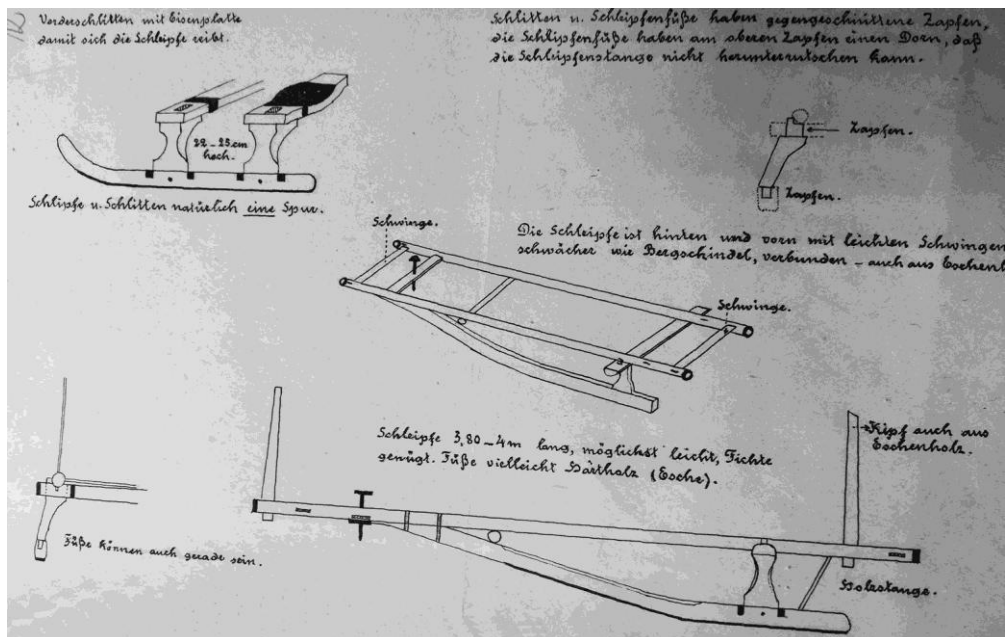 Vorderschlitten mit Eisenplatte
damit sich die Schleipfe reibt.
Schlitten u. Schleipfenfüße haben gegengeschnittene Zapfen,
die Schlipfenfüße haben am oberen Zapfen einen Dorn, daß
die Schleipfenstange nicht herunterrutschen kann.
22-25 cm
hoch.
Zapfen.
Zapfen.
Schlipfe u. Schlitten natürlich eine Spur.
Schwinge.
Die Schleipfe ist hinten und vorn mit leichten Schwingen
schwächer wie Bergschindel, verbunden – auch aus
Schwinge.
Schleipfe 3,80-4m lang, möglichst leicht, Fichte
genügt. Füße vielleicht Härtholz (Esche).
Kipf auch aus
Eschenholz.
Füße können auch gerade sein.
Holzstange.